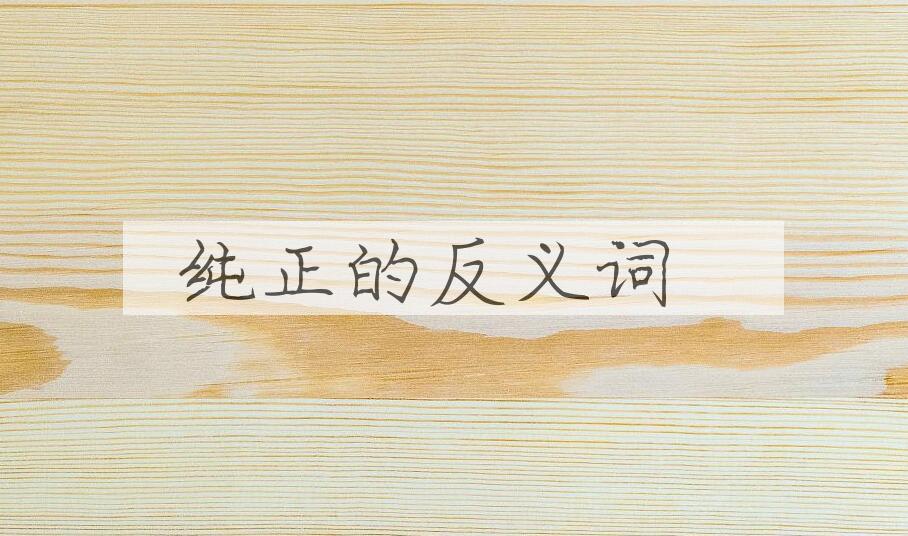 纯正的反义词